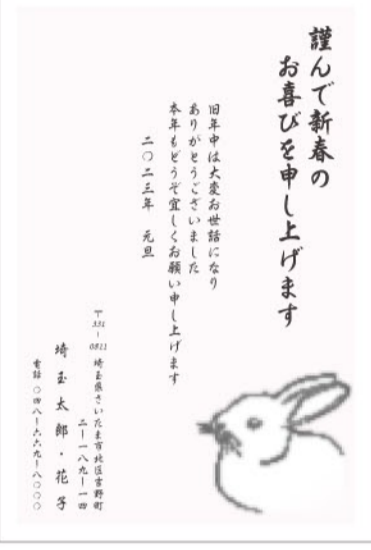 謹んで新春の
お喜びを申し上げます
旧年中は大変お世話になり
ありがとうございました
本年もどうぞ宜しくお願い申し上げます
二〇二三年 元旦
〒331-0811 埼玉県さいたま市北区吉野町
二ー一八九ー一四
埼玉太郎・花子
電話 〇四八ー六六九ー八〇〇〇